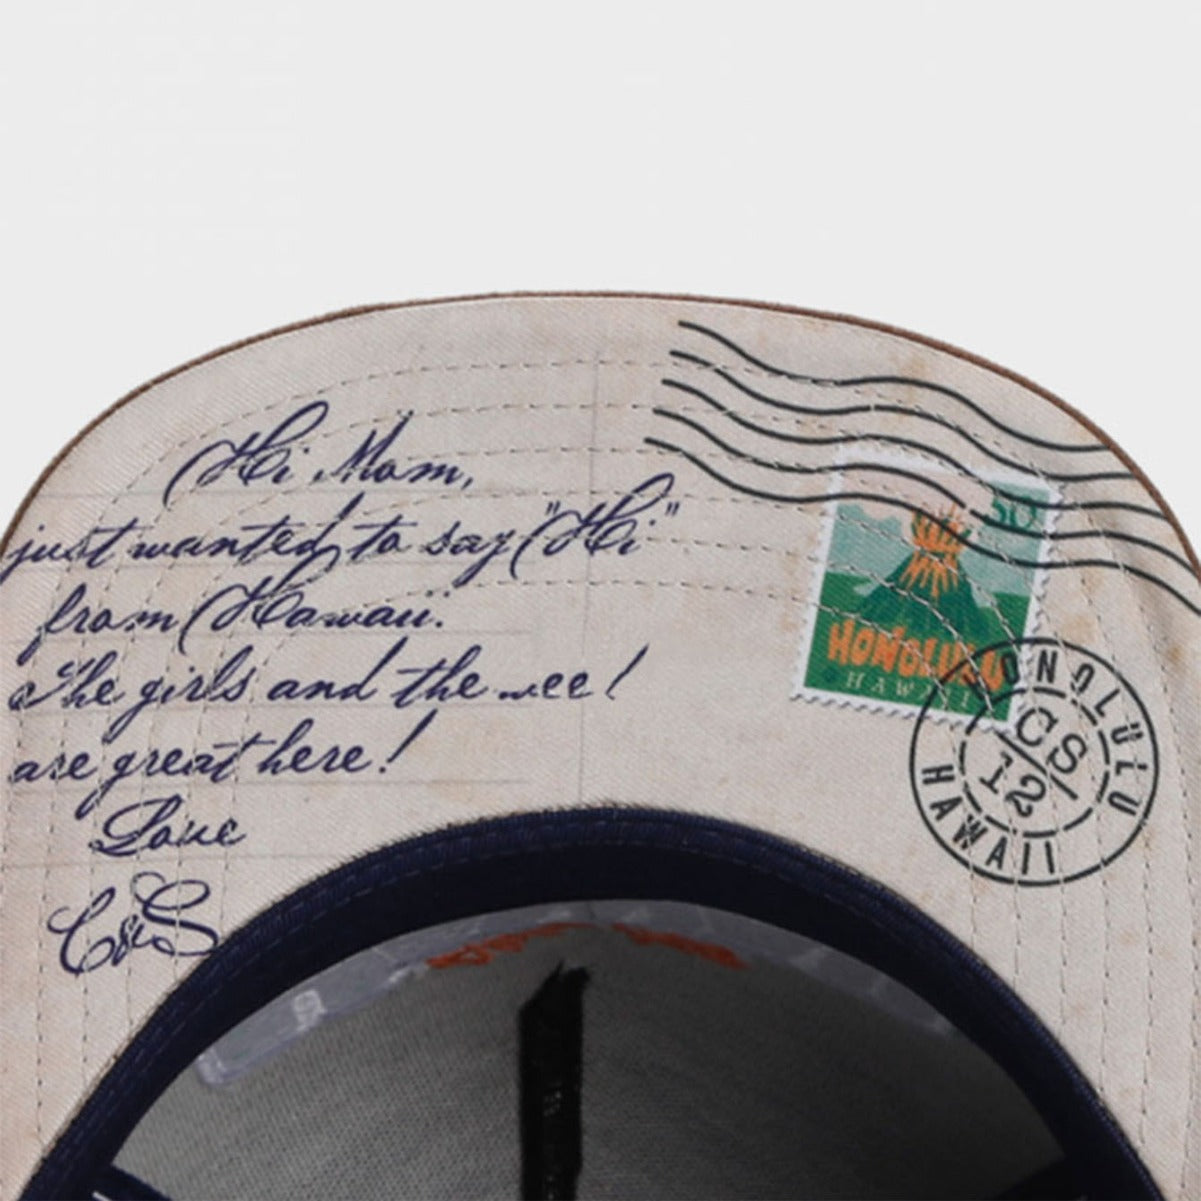 Hi Mom,
just wanted to say "Hi"
from Hawaii.
The girls and the ...eel
are great here!
Love
C&S
50
HONOLULU
HAWAII
HONOLULU
CS
12
HAWAII